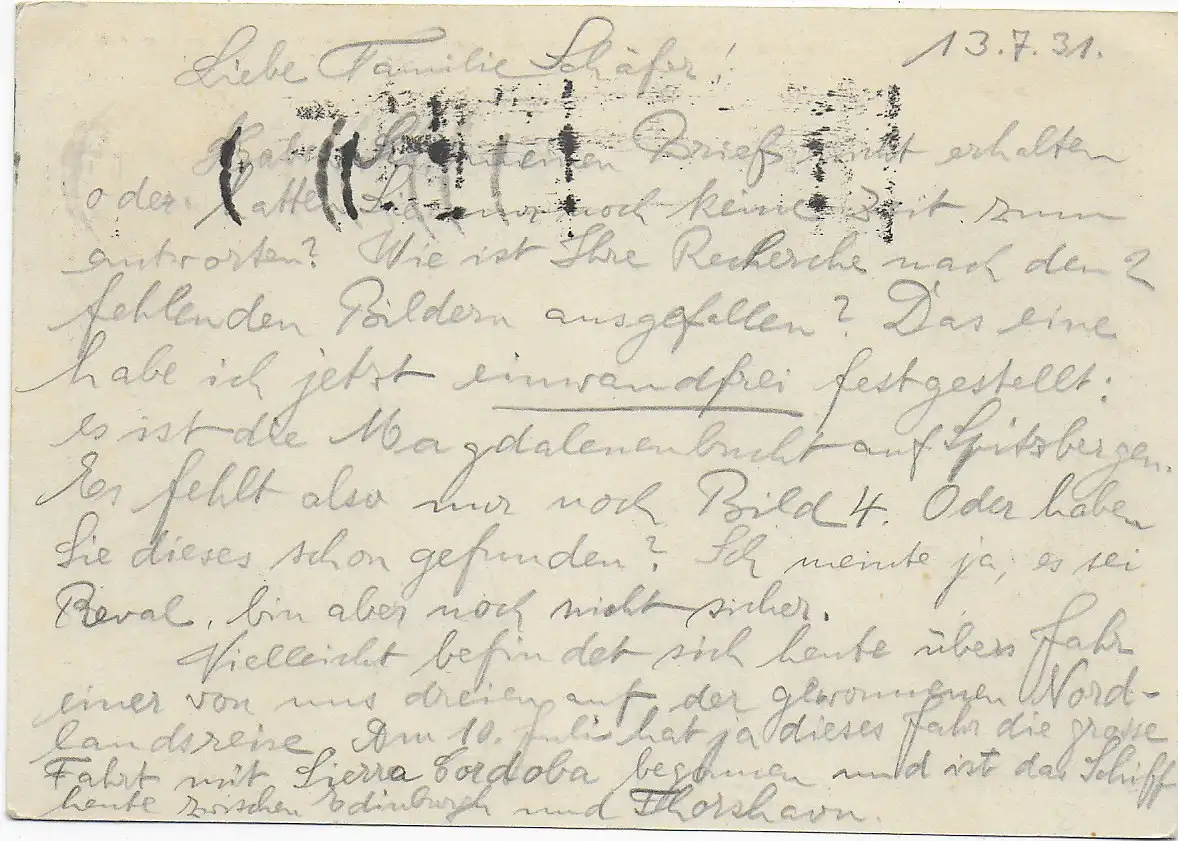 13.7.31.
Liebe Familie Schäfer!
Haben Sie meinen Brief nicht erhalten
oder hatten Sie nur noch keine Zeit zum
antworten? Wie ist Ihre Recherche nach den 2
fehlenden Bildern ausgefallen? Das eine
habe ich jetzt einwandfrei festgestellt:
es ist die Magdalenenbucht auf Spitzbergen.
Es fehlt also nur noch Bild 4. Oder haben
Sie dieses schon gefunden? Ich meinte ja, es sei
Reval, bin aber noch nicht sicher.
Vielleicht befindet sich heute übers Jahr
einer von uns dreien auf der gewonnenen Nord-
landsreise. Am 10. Juli hat ja dieses Jahr die grosse
Fahrt mit Sierra Cordoba begonnen und ist das Schiff
heute zwischen Edinburgh und Thorshavn.